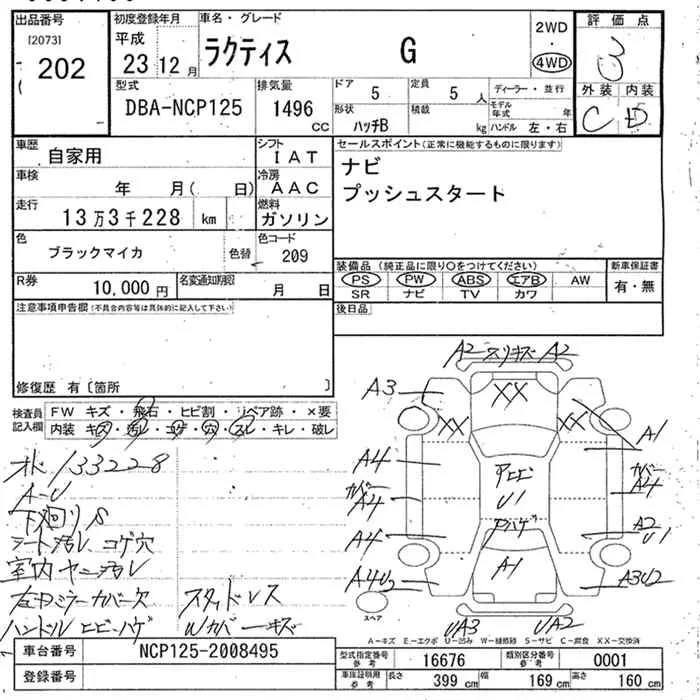 出品番号
[2073]
202
初度登録年月
平成
23 12 月
車名・グレード
ラクティス G
2WD
4WD
評価点
3
外装 内装
C D
型式
DBA-NCP125
排気量
1496
CC
ドア
5
定員
5 人
形状
ハッチB
積載
kg
ディーラー・並行
モデル年式 年
ハンドル 左・右
車歴
自家用
シフト
IAT
車検
年 月( 日)
冷房
AAC
走行
13万3千228 km
燃料
ガソリン
色
ブラックマイカ
色替
色コード
209
R券
10,000 円
名変通知期限
月 日
セールスポイント(正常に機能するものに限ります)
ナビ
プッシュスタート
装備品 (純正品に限り○をつけてください)
PS PW ABS エアB AW
SR ナビ TV カワ
新車保証書
有・無
後日品
注意事項申告欄(不具合内容等は具体的に記入して下さい)
修復歴 有〔箇所 〕
検査員記入欄
FW キズ・飛石・ヒビ割・リペア跡・×要
内装 キズ・汚レ・コゲ・穴・スレ・キレ・破レ
オド133228
A-U
下廻りS
シート汚レ コゲ穴
室内ヤニ汚レ
左ドアミラーカバー欠
ハンドルヒビ・ハゲ
スタッドレス
Wカバーキズ
A2 スリキズ A2
A3
XX
XX
XX
A1
A4
カバー
A4
A4
A4U2
アヒビ
U1
Pハゲ
A1
カバー
A4
A2
U1
A3U2
UA3
UA2
スペア
A-キズ E-エクボ U-凹み W-補修跡 S-サビ C-腐食 XX-交換済
車台番号
NCP125-2008495
登録番号
型式指定番号
参考
16676
類別区分番号
参考
0001
車庫証明用
参考
長さ
399 cm
幅
169 cm
高さ
160 cm